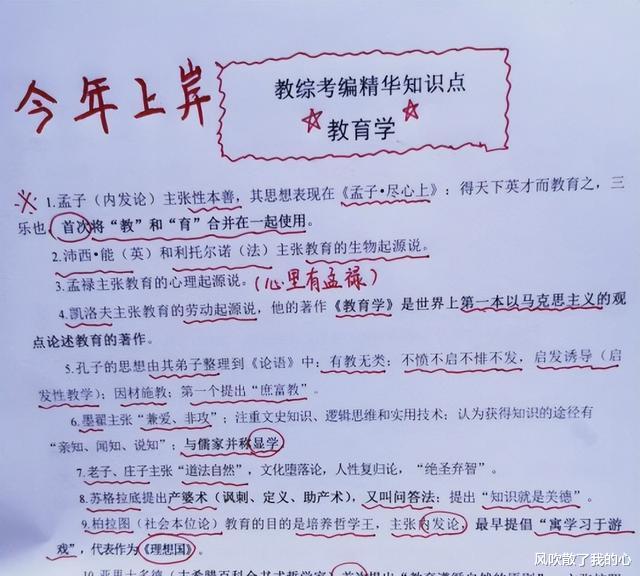 今年上岸
教综考编精华知识点
教育学
1.孟子（内发论）主张性本善，其思想表现在《孟子•尽心上》：得天下英才而教育之，三
乐也，首次将“教”和“育”合并在一起使用。
2.沛西•能（英）和利托尔诺（法）主张教育的生物起源说。
3.孟禄主张教育的心理起源说。（心里有孟禄）
4.凯洛夫主张教育的劳动起源说，他的著作《教育学》是世界上第一本以马克思主义的观
点论述教育的著作。
5.孔子的思想由其弟子整理到《论语》中：有教无类；不愤不启不悱不发，启发诱导（启
发性教学）；因材施教；第一个提出“庶富教”。
6.墨翟主张“兼爱、非攻”；注重文史知识、逻辑思维和实用技术；认为获得知识的途径有
“亲知、闻知、说知”；与儒家并称显学
7.老子、庄子主张“道法自然”，文化堕落论，人性复归论，“绝圣弃智”。
8.苏格拉底提出产婆术（讽刺、定义、助产术），又叫问答法；提出“知识就是美德”。
9.柏拉图（社会本位论）教育的目的是培养哲学王，主张内发论，最早提倡“寓学习于游
戏”，代表作为《理想国》。
风吹散了我的心